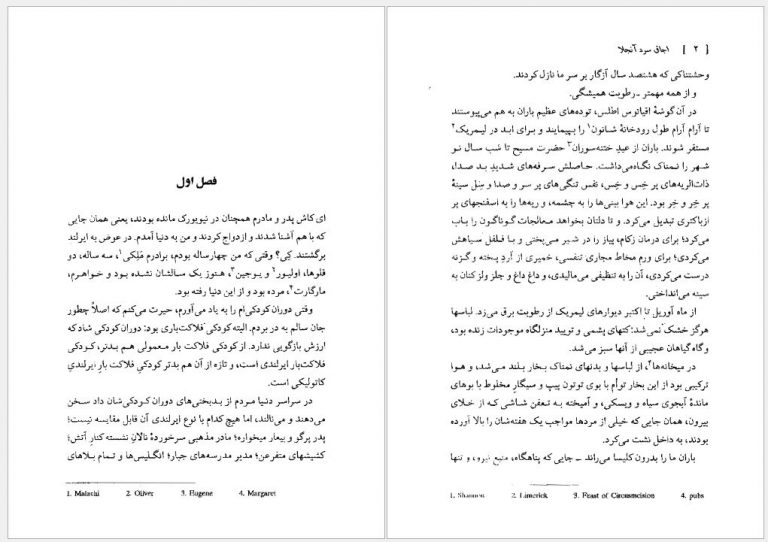 فصل اوّل
ای کاش پدر و مادرم همچنان در نیویورک مانده بودند، یعنی همان جایی
که با هم آشنا شدند و ازدواج کردند و من به دنیا آمدم. در عوض به ایرلند
برگشتند. کِی؟ وقتی که من چهارساله بودم، برادرم مَلِکی۱، سه ساله، دو
قلوها، اولیور۲ و یوجین۳، هنوز یک سالشان نشده بود و خواهرم،
مارگارت۴، مرده بود و از این دنیا رفته بود.
وقتی دوران کودکی‌ام را به یاد می‌آورم، حیرت می‌کنم که اصلاً چطور
جان سالم به در بردم. البته کودکی فلاکت‌باری بود: دوران کودکی شاد که
ارزش بازگویی ندارد. از کودکی فلاکت بار معمولی هم بدتر، کودکی
فلاکت‌بار ایرلندی است، و تازه از آن هم بدتر کودکیِ فلاکت بارِ ایرلندیِ
کاتولیکی است.
در سراسر دنیا مردم از بدبختی‌های دوران کودکی‌شان داد سخن
می‌دهند و می‌نالند، اما هیچ کدام با نوع ایرلندی آن قابل مقایسه نیست؛
پدر پرگو و بیعار میخواره؛ مادر مذهبی سرخوردهٔ نالانِ نشسته کنارِ آتش؛
کشیشهای متفرعن؛ مدیر مدرسه‌های جبار؛ انگلیس‌ها و تمام بلاهای
1. Malachi 2. Oliver 3. Eugene 4. Margaret
[ ۲ ] اجاق سرد آنجلا
وحشتناکی که هشتصد سال آزگار بر سر ما نازل کردند.
و از همه مهمتر ـ رطوبت همیشگی.
در آن گوشهٔ اقیانوس اطلس، توده‌های عظیم باران به هم می‌پیوستند
تا آرام آرام طول رودخانهٔ شانون۱ را بپیمایند و برای ابد در لیمریک۲
مستقر شوند. باران از عیدِ ختنه‌سوران۳ حضرت مسیح تا شب سال نو
شهر را نمناک نگاه می‌داشت. حاصلش سرفه‌های شدیدِ بد صدا،
ذات‌الریه‌های پر خِس و خِس، نفس تنگی‌های پر سر و صدا و سِل سینهٔ
پر خِر و خِر بود. این هوا بینی‌ها را به چشمه، و ریه‌ها را به اسفنجهای پر
ازباکتری تبدیل می‌کرد. و تا دلتان بخواهد معالجات گوناگون را باب
می‌کرد؛ برای درمان زکام، پیاز را در شیر می‌پختی و با فلفل سیاهش
می‌کردی؛ برای ورم مخاط مجاری تنفسی، خمیری از آردِ پخته و گزنه
درست می‌کردی، آن را به تنظیفی می‌مالیدی، و داغ داغ و جلز ولز کنان به
سینه می‌انداختی.
از ماه آوریل تا اکتبر دیوارهای لیمریک از رطوبت برق می‌زد. لباسها
هرگز خشک نمی‌شد؛ کتهای پشمی و تویید منزلگاه موجودات زنده بود،
و گاه گیاهان عجیبی از آنها سبز می‌شد.
در میخانه‌ها۴، از لباسها و بدنهای نمناک بخار بلند می‌شد، و هوا
ترکیبی بود از این بخار توأم با بوی توتون پیپ و سیگارِ مخلوط با بوهای
ماندهٔ آبجوی سیاه و ویسکی، و آمیخته به تعفن شاشی که از خلای
بیرون، همان جایی که خیلی از مردها مواجب یک هفته‌شان را بالا آورده
بودند، به داخل نشت می‌کرد.
باران ما را بدرون کلیسا می‌راند ـ جایی که پناهگاه، منبع نیرو، و تنها
1. Shannon 2. Limerick 3. Feast of Circumcision 4. pubs